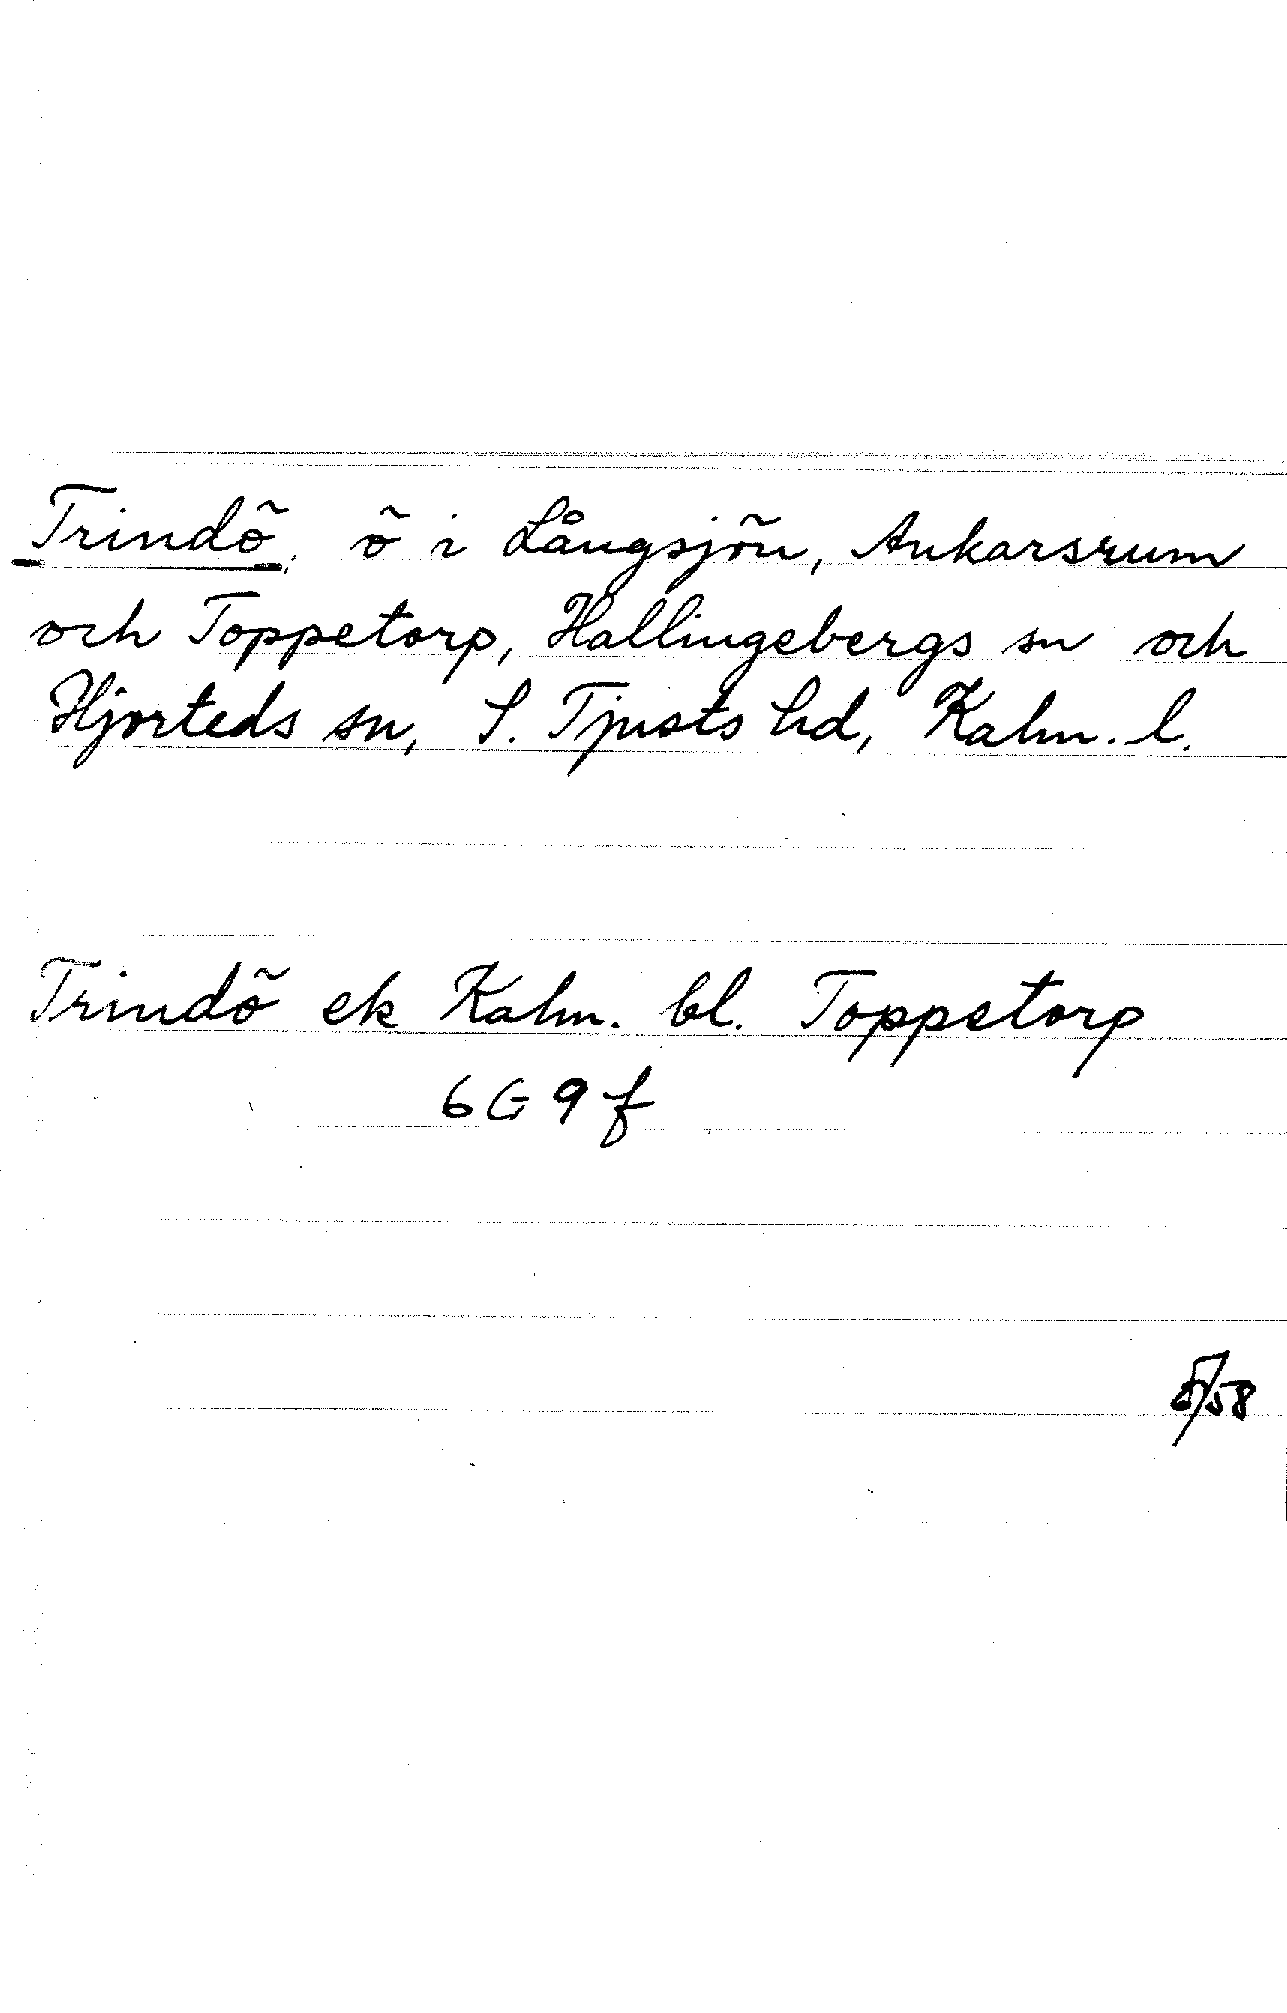 Trindö, ö i Långsjön, Ankarsrum
och Toppetorp, Hallingebergs sn och
Hjorteds sn, S. Tjusts hd, Kalm. l.
Trindö ek Kalm. bl. Toppetorp
6G 9f
5/58